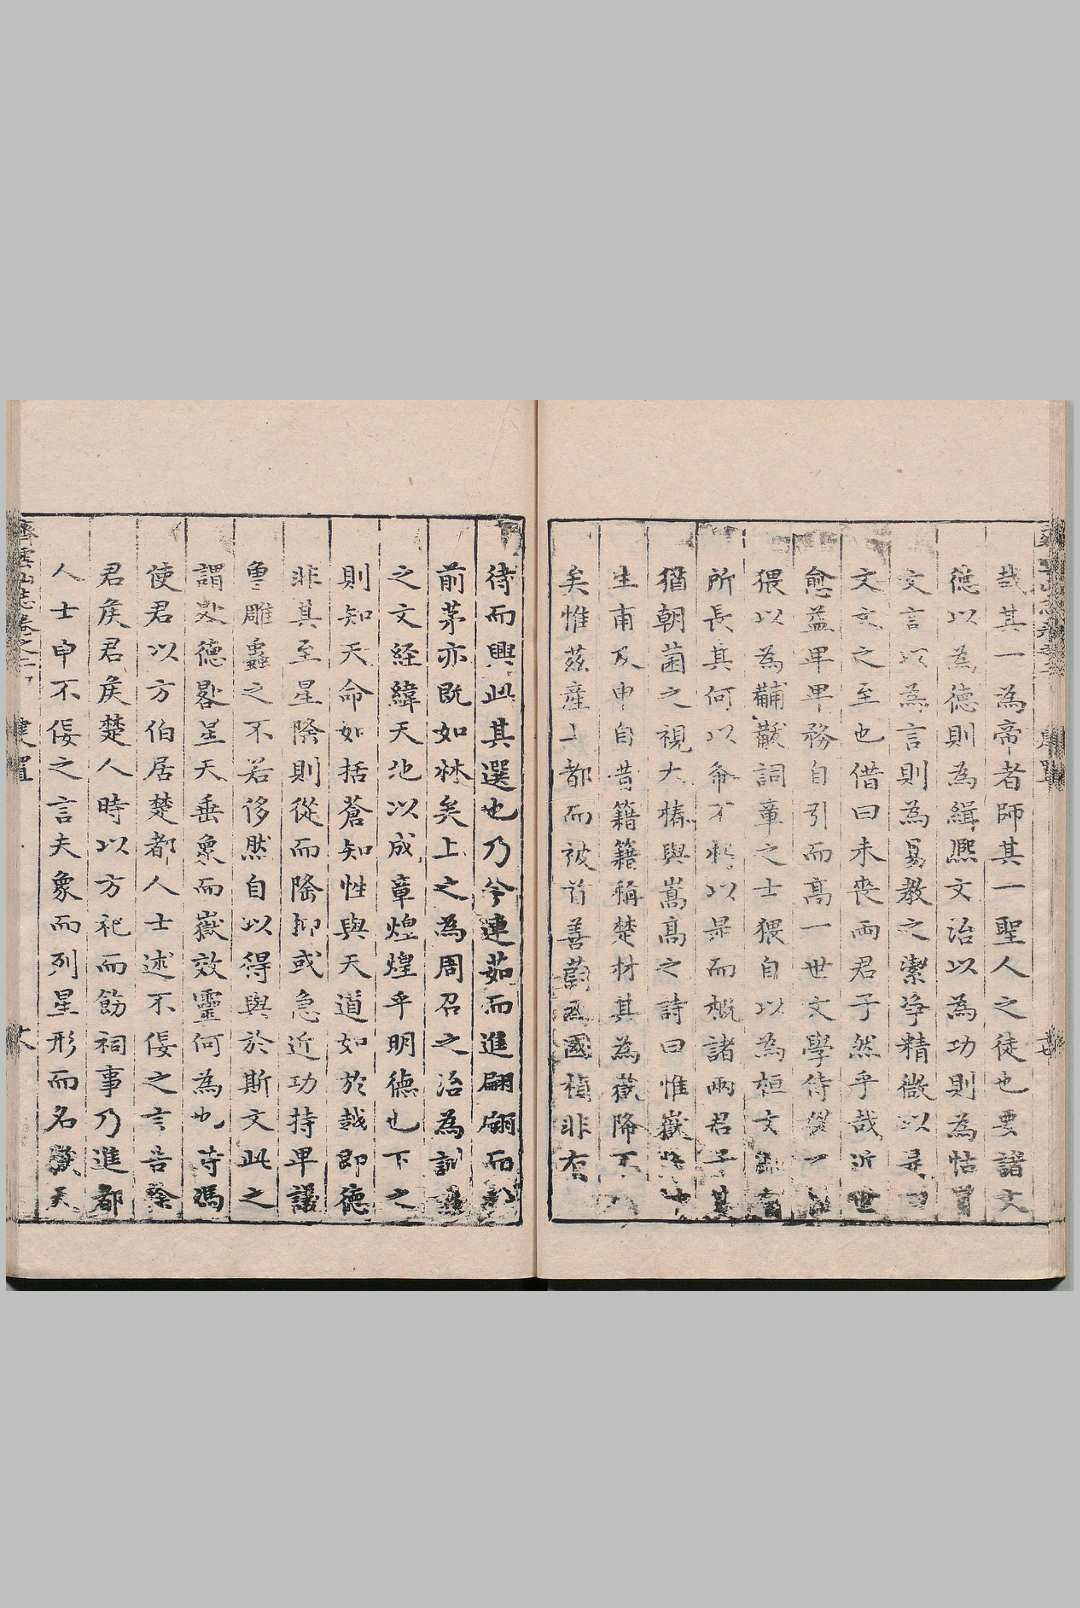 哉其一為帝者師其一聖人之徒也要諸文
德以為德則為緝熙文治以為功則為怙冒
文言以為言則為易教之潔凈精微以尋
文文之至也借曰未喪兩君子然乎哉近世
愈益卑卑務自引而高一世文學侍從
猥以為黼黻詞章之士猥自以為桓文
所長其何以命不 以是而概諸兩君子
猶朝菌之視大椿與嵩高之詩曰惟嶽
生甫及申自昔籍籍稱楚材其為嶽降
矣惟茲產上都而被首善蔚為國楨非有
待而興此其選也乃今連茹而進翩翩而
前茅亦既如林矣上之為周召之治為訓
之文經緯天地以成章煌煌乎明德也下之
則知天命如括蒼知性與天道如於越即德
非其至星隆則從而隆抑或急近功持卑議
雕蟲之不若侈然自以得與於斯文此之
謂 德畧星天垂象而嶽效靈何為也 馮
使君以方伯居楚都人士述不佞之言告徐
君侯君侯楚人時以方祀而飭祠事乃進都
人士申不佞之言夫象而列星形而名嶽天
齊雲山志卷之二 建置